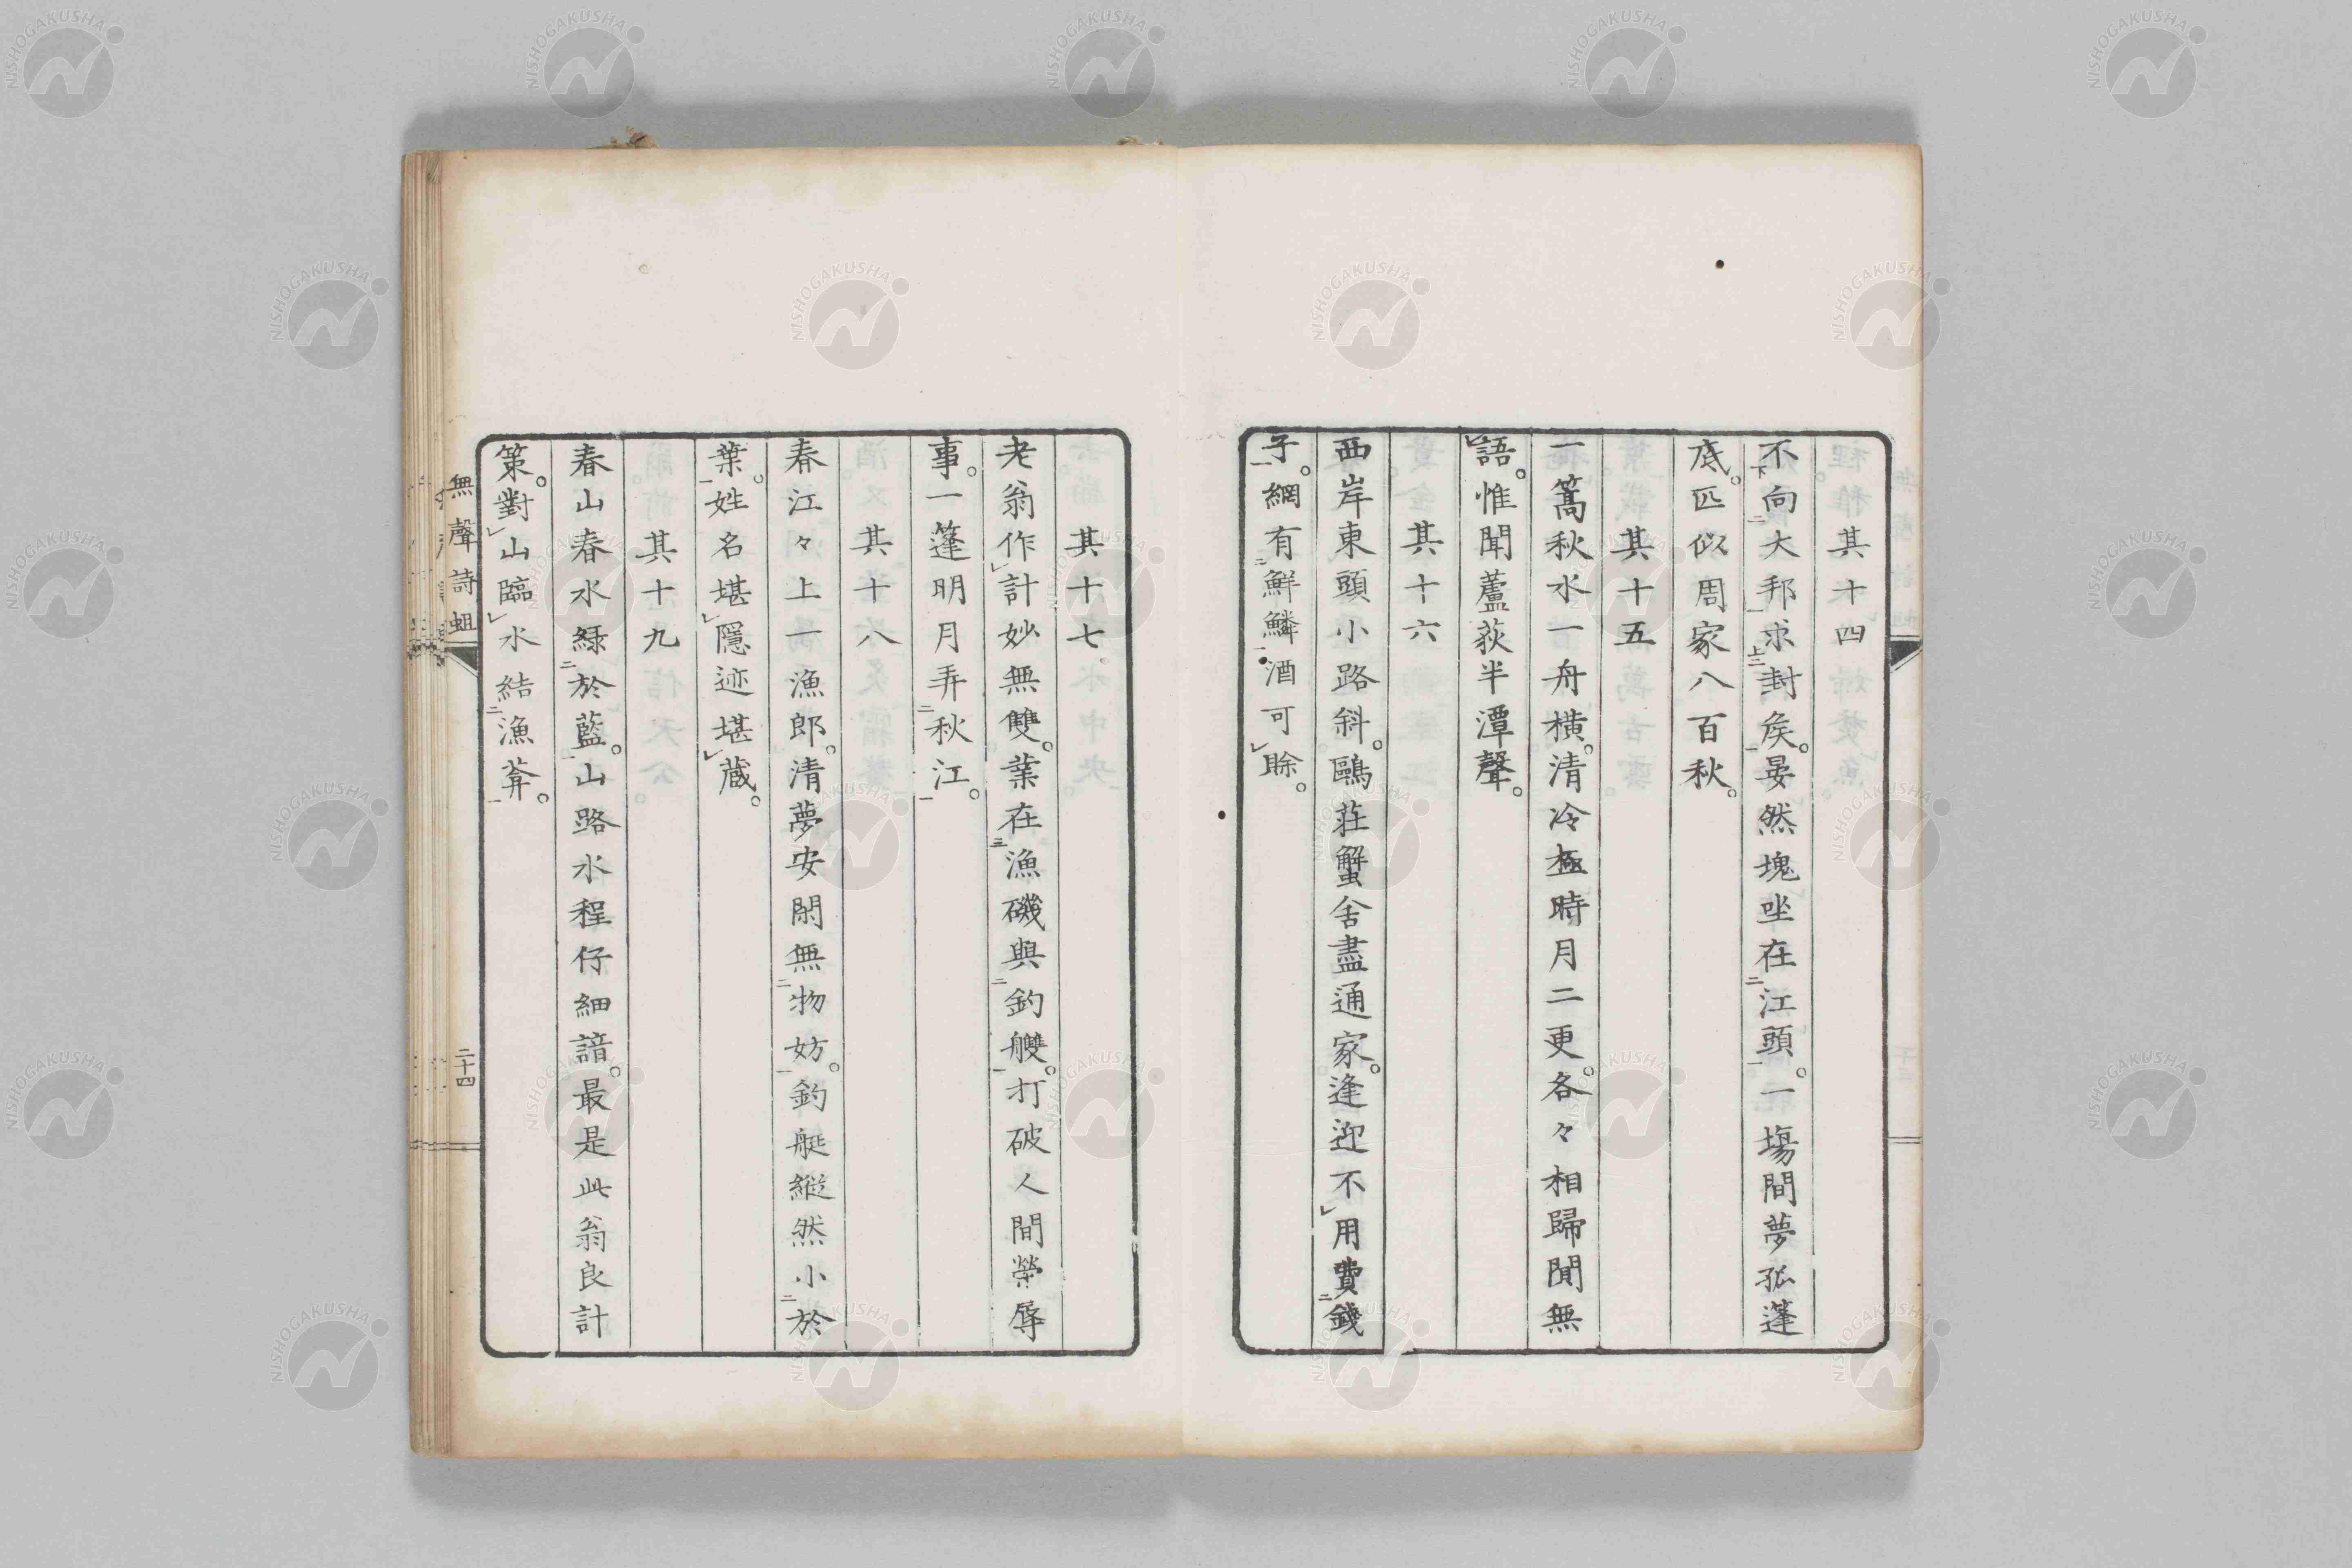 其十四
不向大邦求封矦。晏然塊坐在江頭。一場間夢孤蓬
底。匹似周家八百秋。
其十五
一篙秋水一舟橫。清冷極時月二更。各々相歸閒無
語。惟聞蘆荻半潭聲。
其十六
西岸東頭小路斜。鷗莊蟹舍盡通家。逢迎不用費錢
子。網有鮮鱗酒可賖。
其十七
老翁作計妙無雙。葉在漁磯與釣艭。打破人間榮辱
事。一篷明月弄秋江。
其十八
春江々上一漁郎。清夢安閑無物妨。釣艇縱然小於
葉。姓名堪隱迹堪蔵。
其十九
春山春水綠於藍。山路水程仔細諳。最是此翁良計
策。對山臨水結漁葊。
無聲詩蛆
二十四
NISHOGAKUSHA